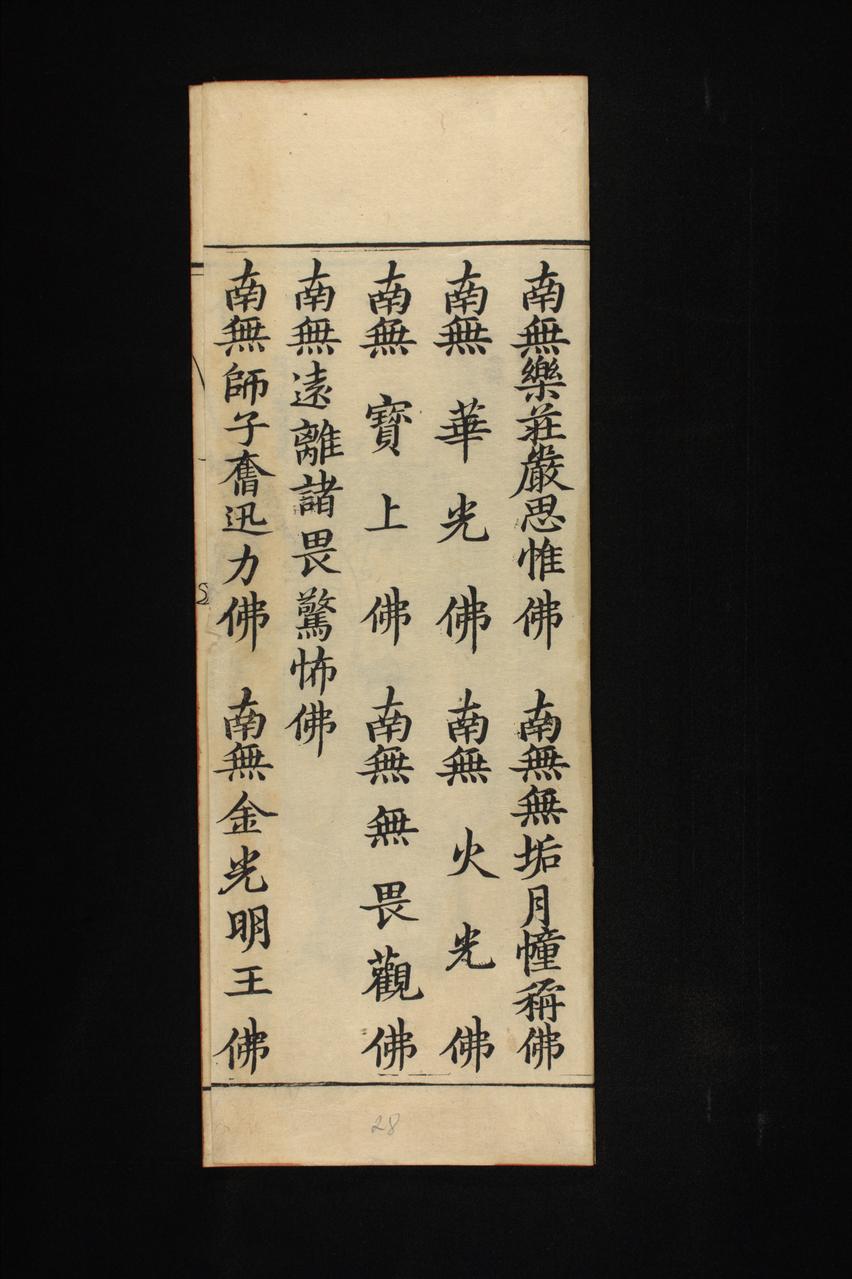 南無樂莊嚴思惟佛 南無無垢月幢稱佛
南無華光佛 南無火光佛
南無寶上佛 南無無畏觀佛
南無遠離諸畏驚怖佛
南無師子奮迅力佛 南無金光明王佛
28